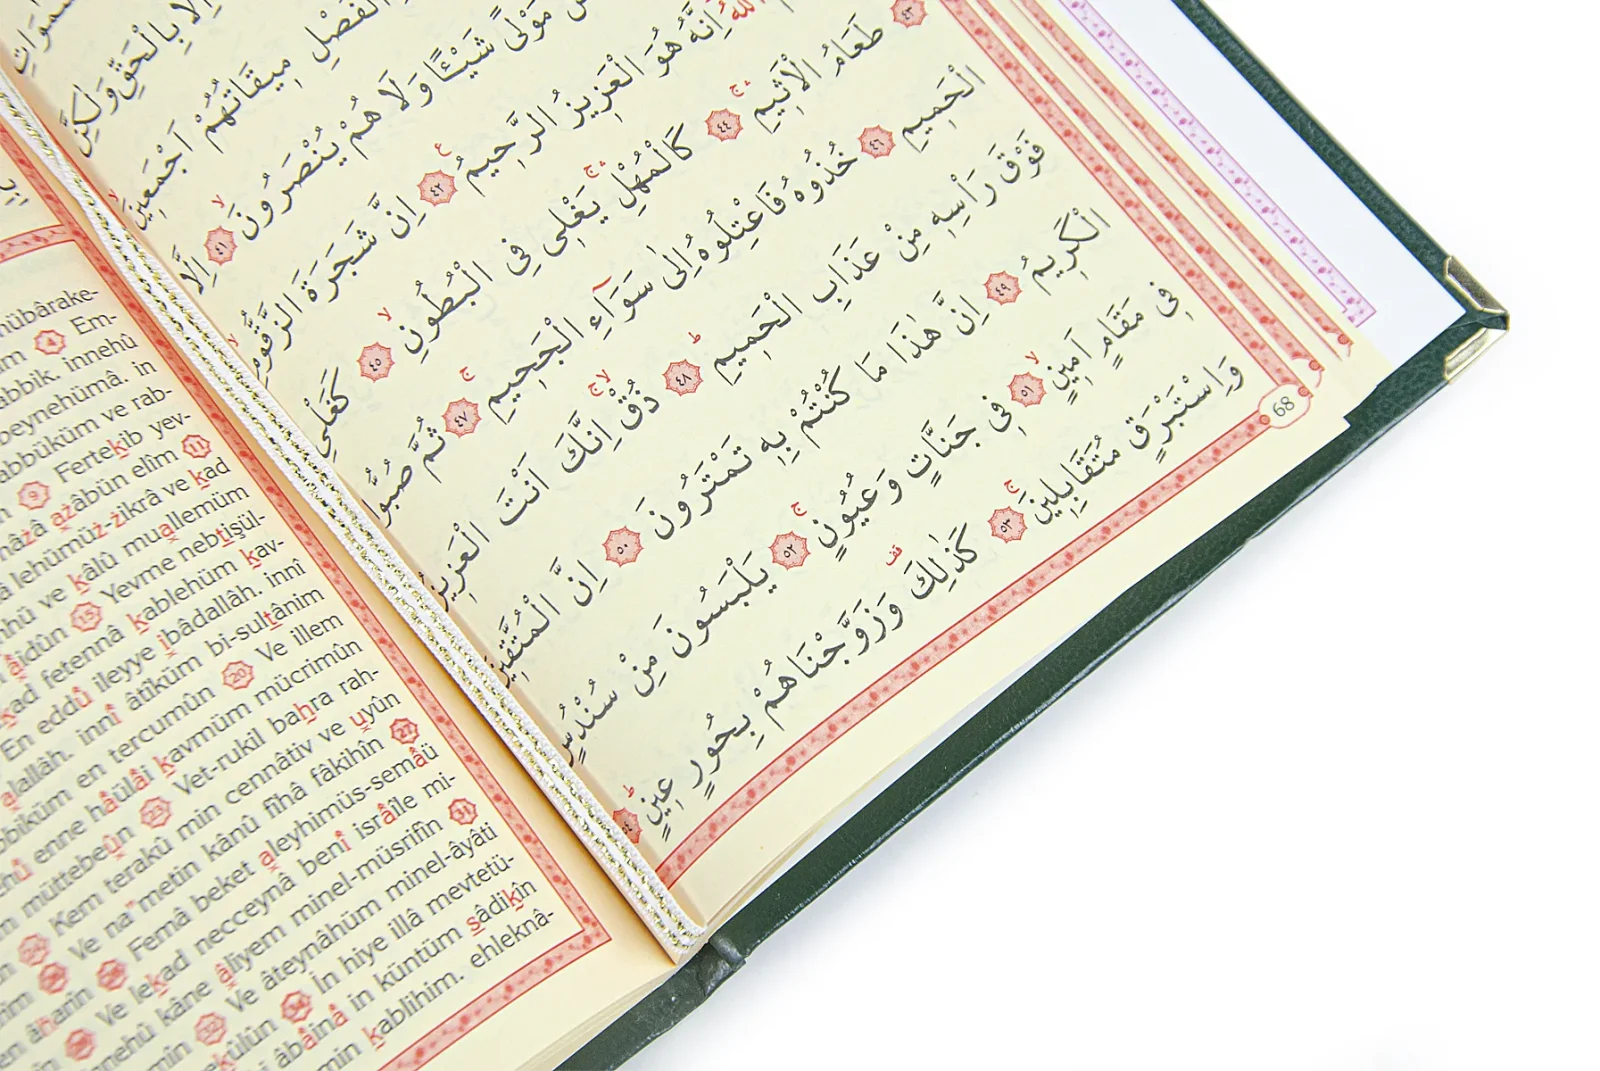 اِلَّا بِالْحَقِّ وَلٰكِنَّ
الْفَصْلِ مِيقَاتُهُمْ اَجْمَعِينَ
مَوْلًى شَيْـًٔا وَلَا هُمْ يُنْصَرُونَ ٤١ اِلَّا
اللّٰهُ اِنَّهُ هُوَ الْعَزِيزُ الرَّحِيمُ ٤٢ اِنَّ شَجَرَةَ الزَّقُّومِ
٤٣ طَعَامُ الْاَثِيمِ ٤٤ كَالْمُهْلِ يَغْلِى فِى الْبُطُونِ ٤٥ كَغَلْىِ
الْحَمِيمِ ٤٦ خُذُوهُ فَاعْتِلُوهُ اِلٰى سَوَٓاءِ الْجَحِيمِ ٤٧ ثُمَّ صُبُّوا
فَوْقَ رَاْسِهِ مِنْ عَذَابِ الْحَمِيمِ ٤٨ ذُقْ اِنَّكَ اَنْتَ الْعَزِيزُ
الْكَرِيمُ ٤٩ اِنَّ هٰذَا مَا كُنْتُمْ بِهِ تَمْتَرُونَ ٥٠ اِنَّ الْمُتَّقِينَ
فِى مَقَامٍ اَمِينٍ ٥١ فِى جَنَّاتٍ وَعُيُونٍ ٥٢ يَلْبَسُونَ مِنْ سُنْدُسٍ
وَاِسْتَبْرَقٍ مُتَقَابِلِينَ ٥٣ كَذٰلِكَ وَزَوَّجْنَاهُمْ بِحُورٍ عِينٍ ٥٤
68
mübârake-
4 Em-
rabbik. innehû
beynehümâ. in
rabbüküm ve rab-
9 Fertekib yev-
hâzâ azâbün elîm 11
lehümüz-zikrâ ve kad
hû ve kâlû muallemüm
âidûn 15 Yevme nebtişül-
kad fetennâ kablehüm kav-
En eddû ileyye ibâdallâh. innî
alallâh. innî âtîküm bi-sultânim
biküm en tercumûn 20 Ve illem
hû enne hâülâi kavmüm mücrimûn
müttebeûn 23 Vet-rukil bahra rah-
24 Kem terakû min cennâtiv ve uyûn
Ve na'metin kânû fîhâ fâkihîn 27
28 Femâ beket aleyhimüs-semâü
29 Ve lekad necceynâ benî isrâîle mi-
innehû kâne âliyem minel-müsrifîn 31
32 Ve âteynâhüm minel-âyâti
külûn 34 İn hiye illâ mevtetü-
âbâinâ in küntüm sâdikîn
min kablihim. ehleknâ-